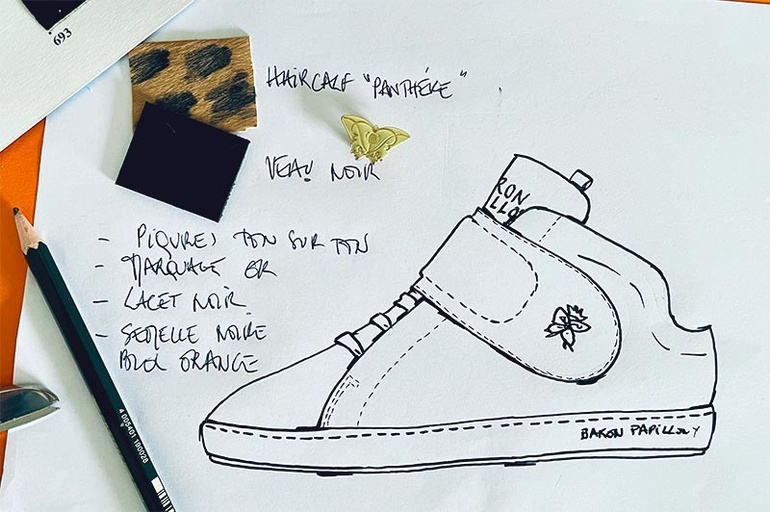 693
HAIRCALF "PANTHÉRE"
VEAU NOIR
- PIQURES TON SUR TON
- MARQUAGE OR
- LACET NOIR
- SEMELLE NOIRE
BLOC ORANGE
RON
LLO
BARON PAPILLON
4 005401 190028